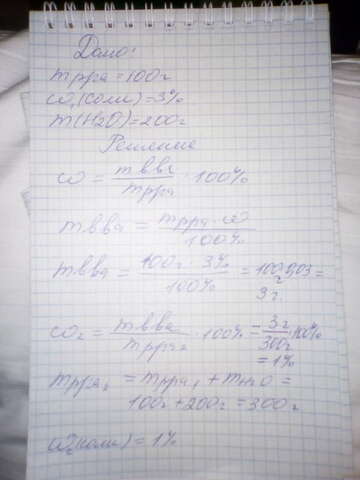 Дано:
mрра = 100г
ω₁(соли) = 3%
m(H2O) = 200г
Решение
ω = mвва / mрра · 100%
mвва = mрра · ω / 100%
mвва = 100г · 3% / 100% = 100г · 0,03 =
3г
ω₂ = mвва / mрра₂ · 100% = 3г / 300г · 100%
= 1%
mрра₂ = mрра₁ + mH2O =
100г + 200г = 300г
ω₂(соли) = 1%